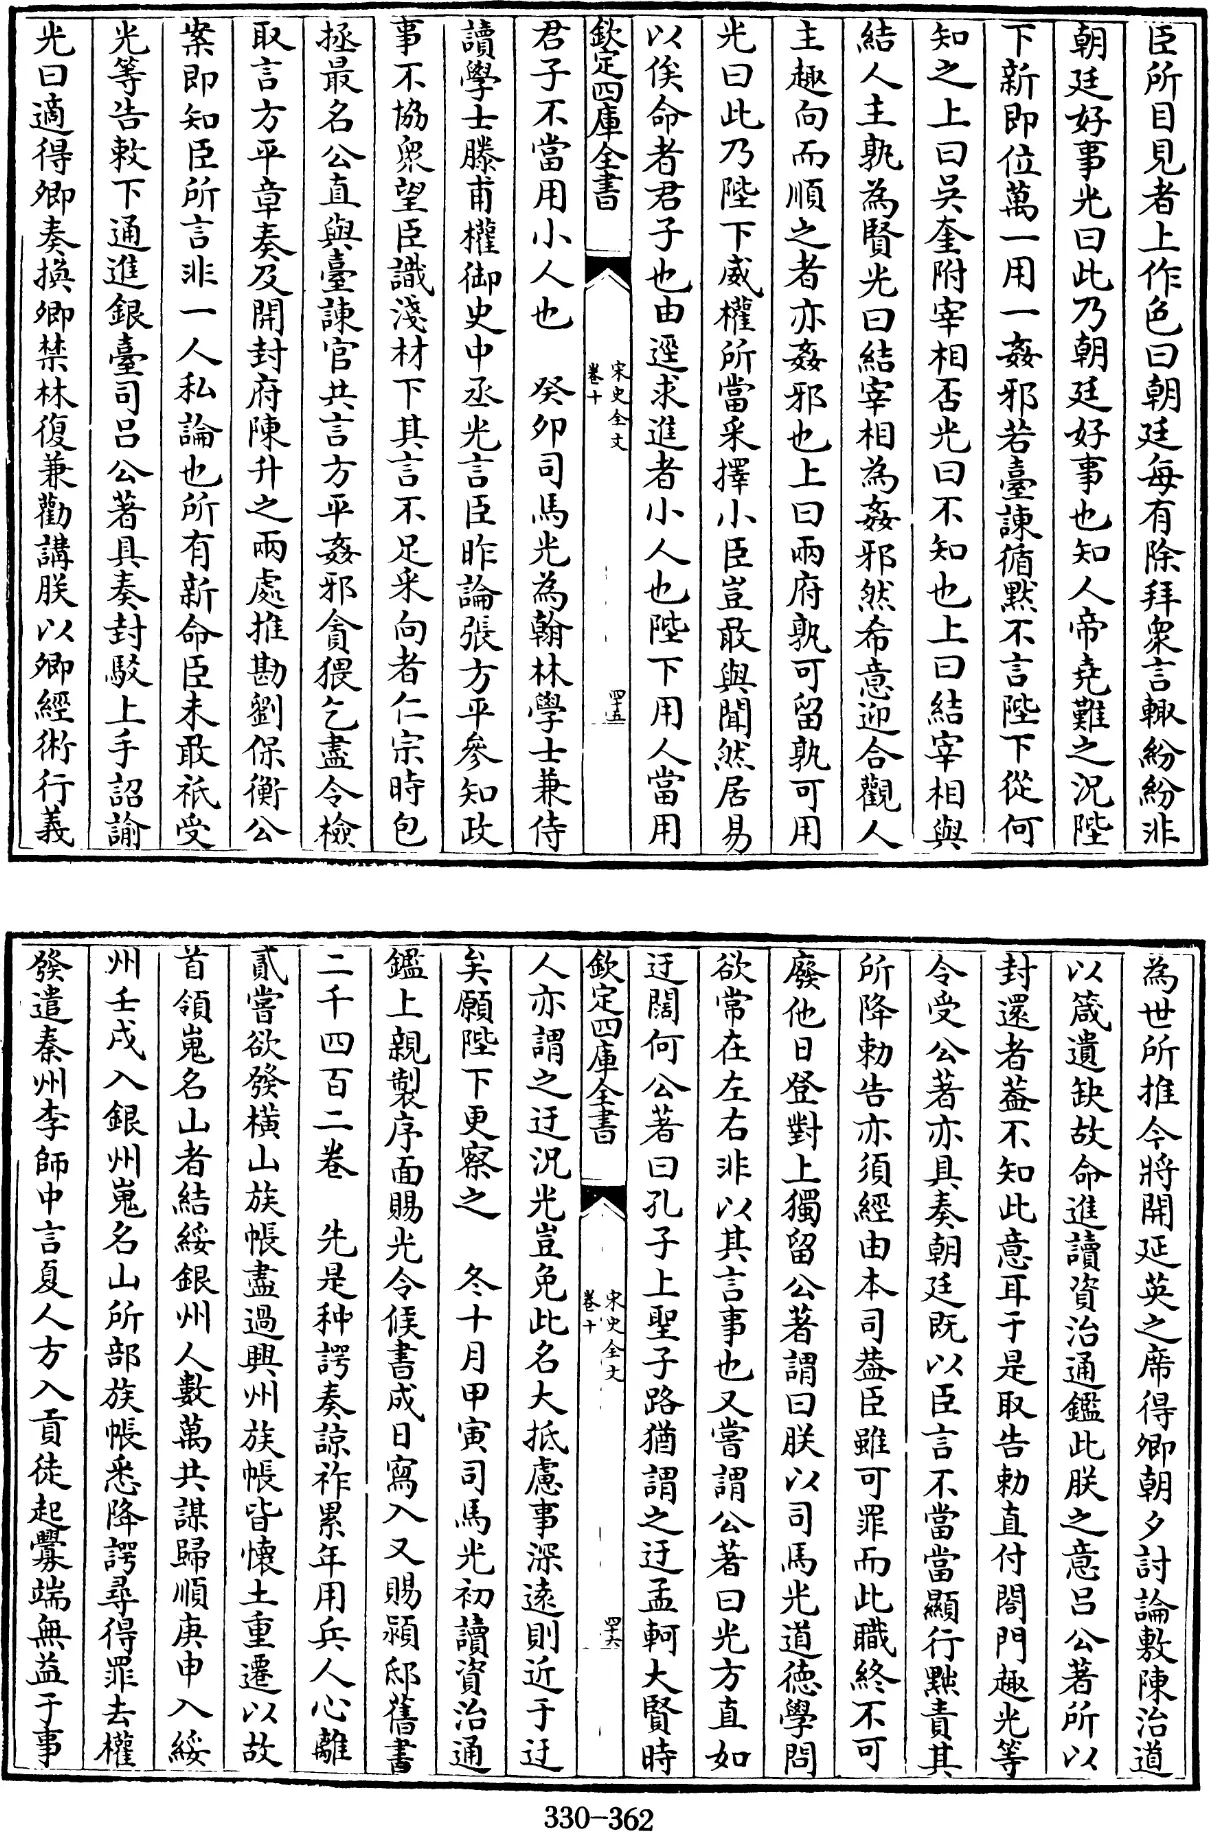 臣所目見者上作色曰朝廷每有除拜衆言輙紛紛非
朝廷好事光曰此乃朝廷好事也知人帝堯難之況陛
下新即位萬一用一姦邪若臺諫循黙不言陛下從何
知之上曰吳奎附宰相否光曰不知也上曰結宰相與
結人主孰為賢光曰結宰相為姦邪然希意迎合觀人
主趣向而順之者亦姦邪也上曰兩府孰可留孰可用
光曰此乃陛下威權所當采擇小臣豈敢與聞然居易
以俟命者君子也由逕求進者小人也陛下用人當用
欽定四庫全書
宋史全文
卷十
四十五
君子不當用小人也　癸卯司馬光為翰林學士兼侍
讀學士滕甫權御史中丞光言臣昨論張方平參知政
事不協衆望臣識淺材下其言不足采向者仁宗時包
拯最名公直與臺諫官共言方平姦邪貪猥乞盡令檢
取言方平章奏及開封府陳升之兩處推勘劉保衡公
案即知臣所言非一人私論也所有新命臣未敢祇受
光等告敕下通進銀臺司呂公著具奏封駁上手詔諭
光曰適得卿奏換卿禁林復兼勸講朕以卿經術行義
為世所推今將開延英之席得卿朝夕討論敷陳治道
以箴遺缺故命進讀資治通鑑此朕之意呂公著所以
封還者葢不知此意耳于是取告勅直付閤門趣光等
令受公著亦具奏朝廷既以臣言不當當顯行黜責其
所降勅告亦須經由本司葢臣雖可罪而此職終不可
廢他日登對上獨留公著謂曰朕以司馬光道德學問
欲常在左右非以其言事也又嘗謂公著曰光方直如
迂闊何公著曰孔子上聖子路猶謂之迂孟軻大賢時
欽定四庫全書
宋史全文
卷十
四十六
人亦謂之迂況光豈免此名大抵慮事深逺則近于迂
矣願陛下更察之　冬十月甲寅司馬光初讀資治通
鑑上親製序面賜光令候書成日寫入又賜潁邸舊書
二千四百二卷　先是种諤奏諒祚累年用兵人心離
貳嘗欲發橫山族帳盡過興州族帳皆懷土重遷以故
首領嵬名山者結綏銀州人數萬共謀歸順庚申入綏
州壬戌入銀州嵬名山所部族帳悉降諤尋得罪去權
發遣秦州李師中言夏人方入貢徒起釁端無益于事
330-362